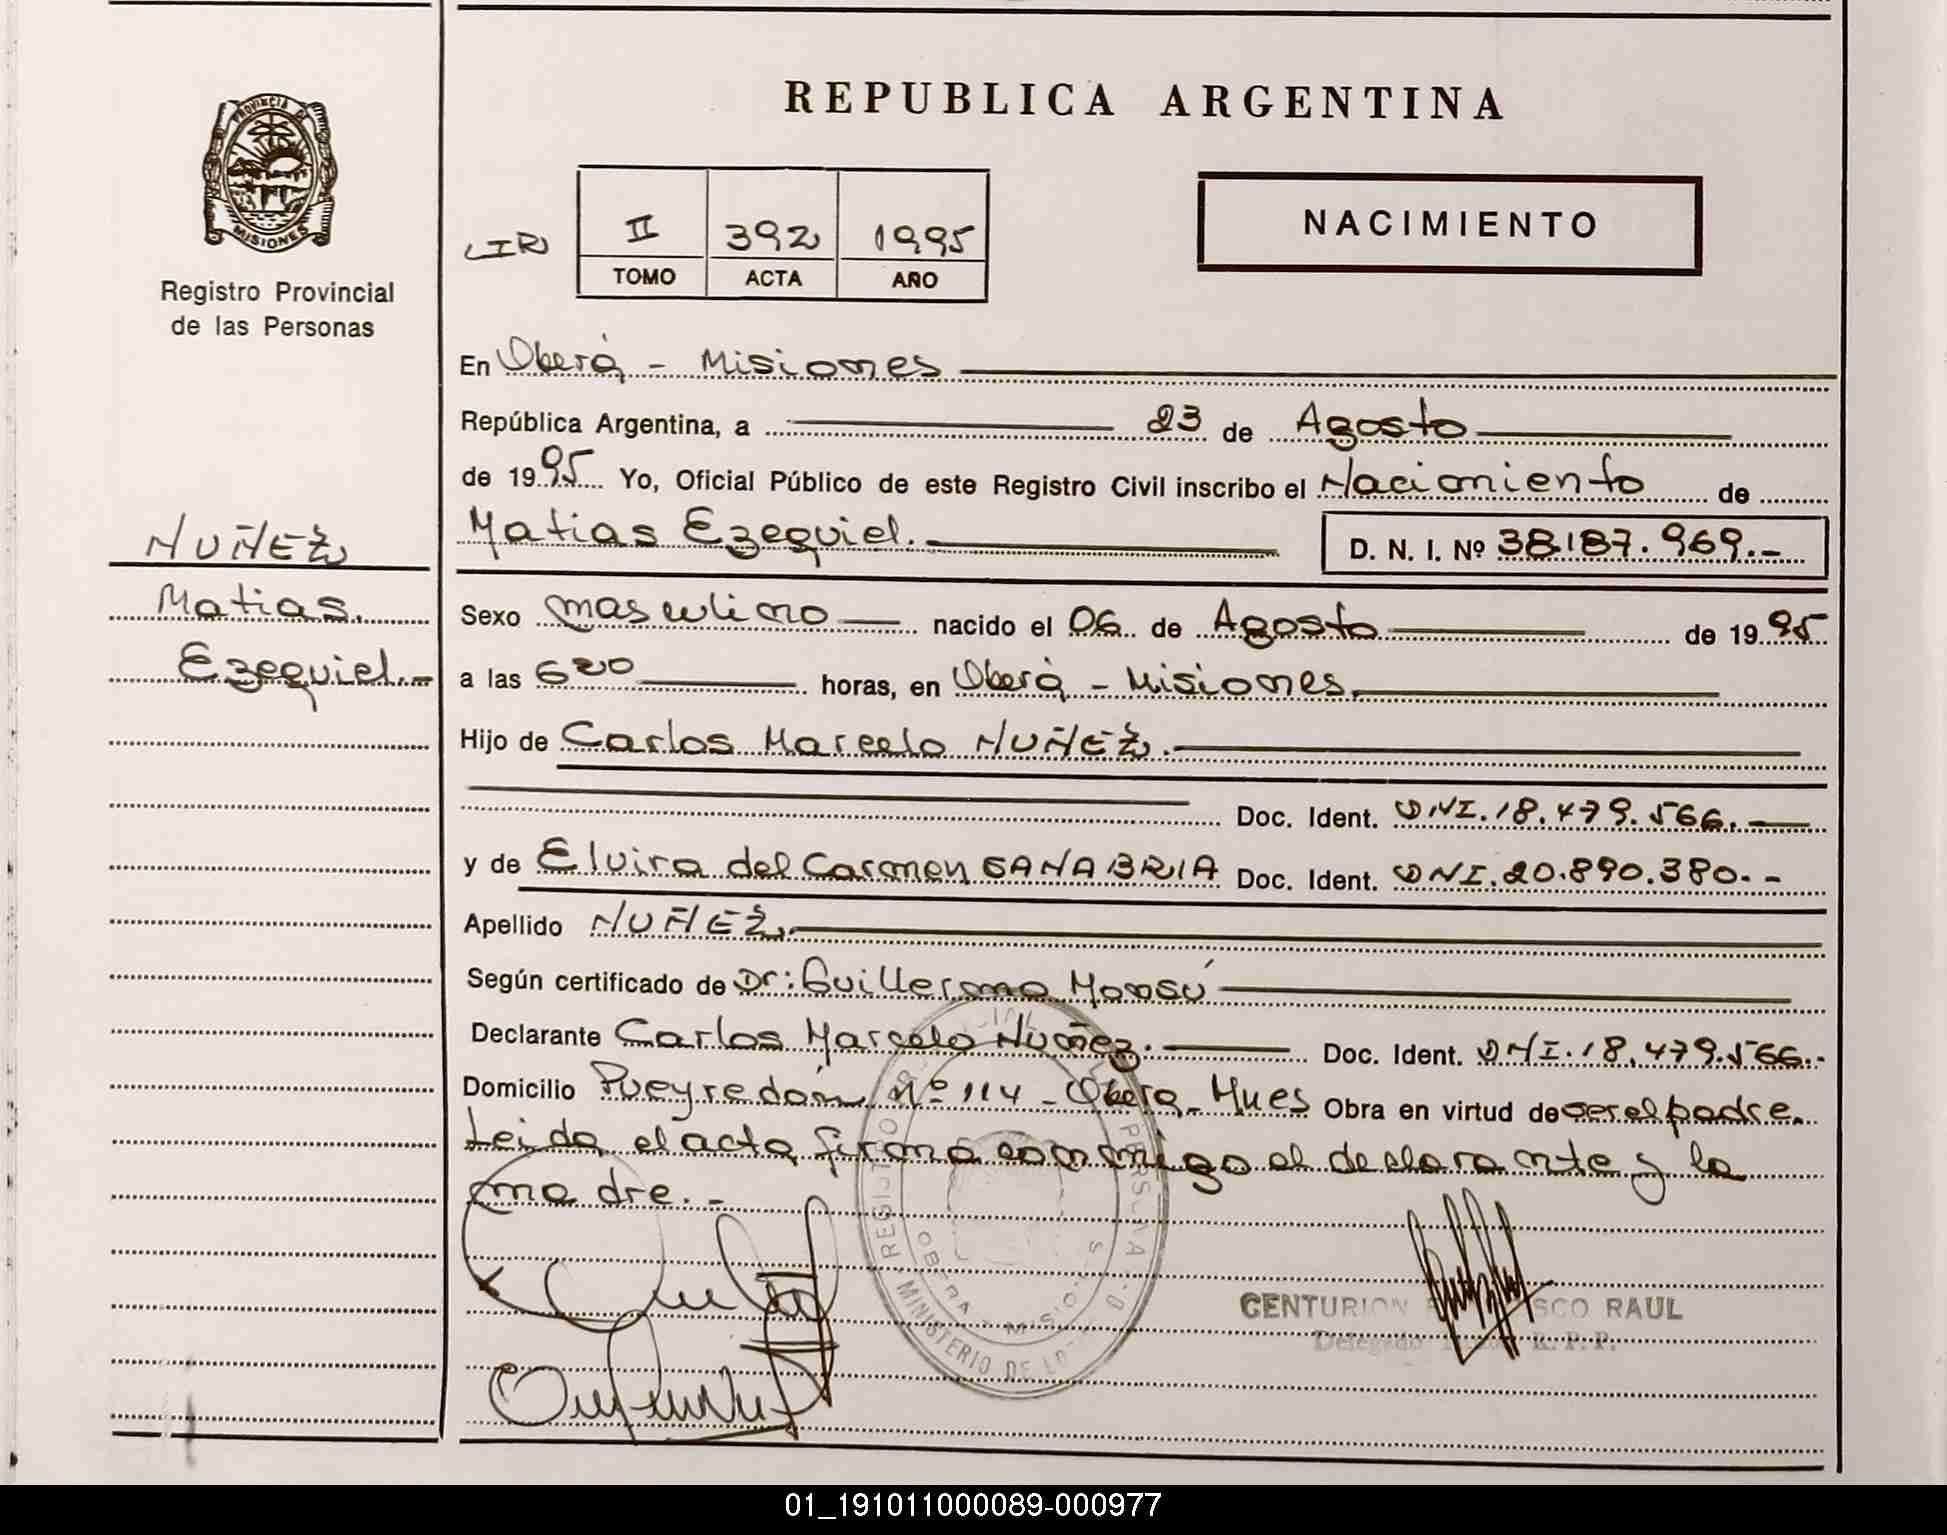 REPUBLICA ARGENTINA
PROVINCIA DE
MISIONES
Registro Provincial
de las Personas
NACIMIENTO
II 392 1995
TOMO ACTA AÑO
En Oberá - Misiones
República Argentina, a 23 de Agosto
de 1995 Yo, Oficial Público de este Registro Civil inscribo el Nacimiento de
NUÑEZ
Matias Ezequiel. D. N. I. Nº 38.187.969.-
Matias.
Ezequiel.-
Sexo masculino nacido el 06 de Agosto de 1995
a las 6 20 horas, en Oberá - Misiones.
Hijo de Carlos Marcelo NUÑEZ.
Doc. Ident. DNI.18.479.566.
y de Elvira del Carmen SANABRIA Doc. Ident. DNI.20.890.380.-
Apellido NUÑEZ.
Según certificado de Dr: Guillermo
Declarante Carlos Marcelo Nuñez. Doc. Ident. DNI.18.479.566.-
Domicilio Pueyredón Nº 114 - Oberá - Mnes Obra en virtud de ser el padre.
Leida el acta firma conmigo el declarante y la
madre.-
OBERA MISIO
MINISTERIO DE
CENTURION SCO RAUL
Delegado R.P.P.
01_191011000089-000977